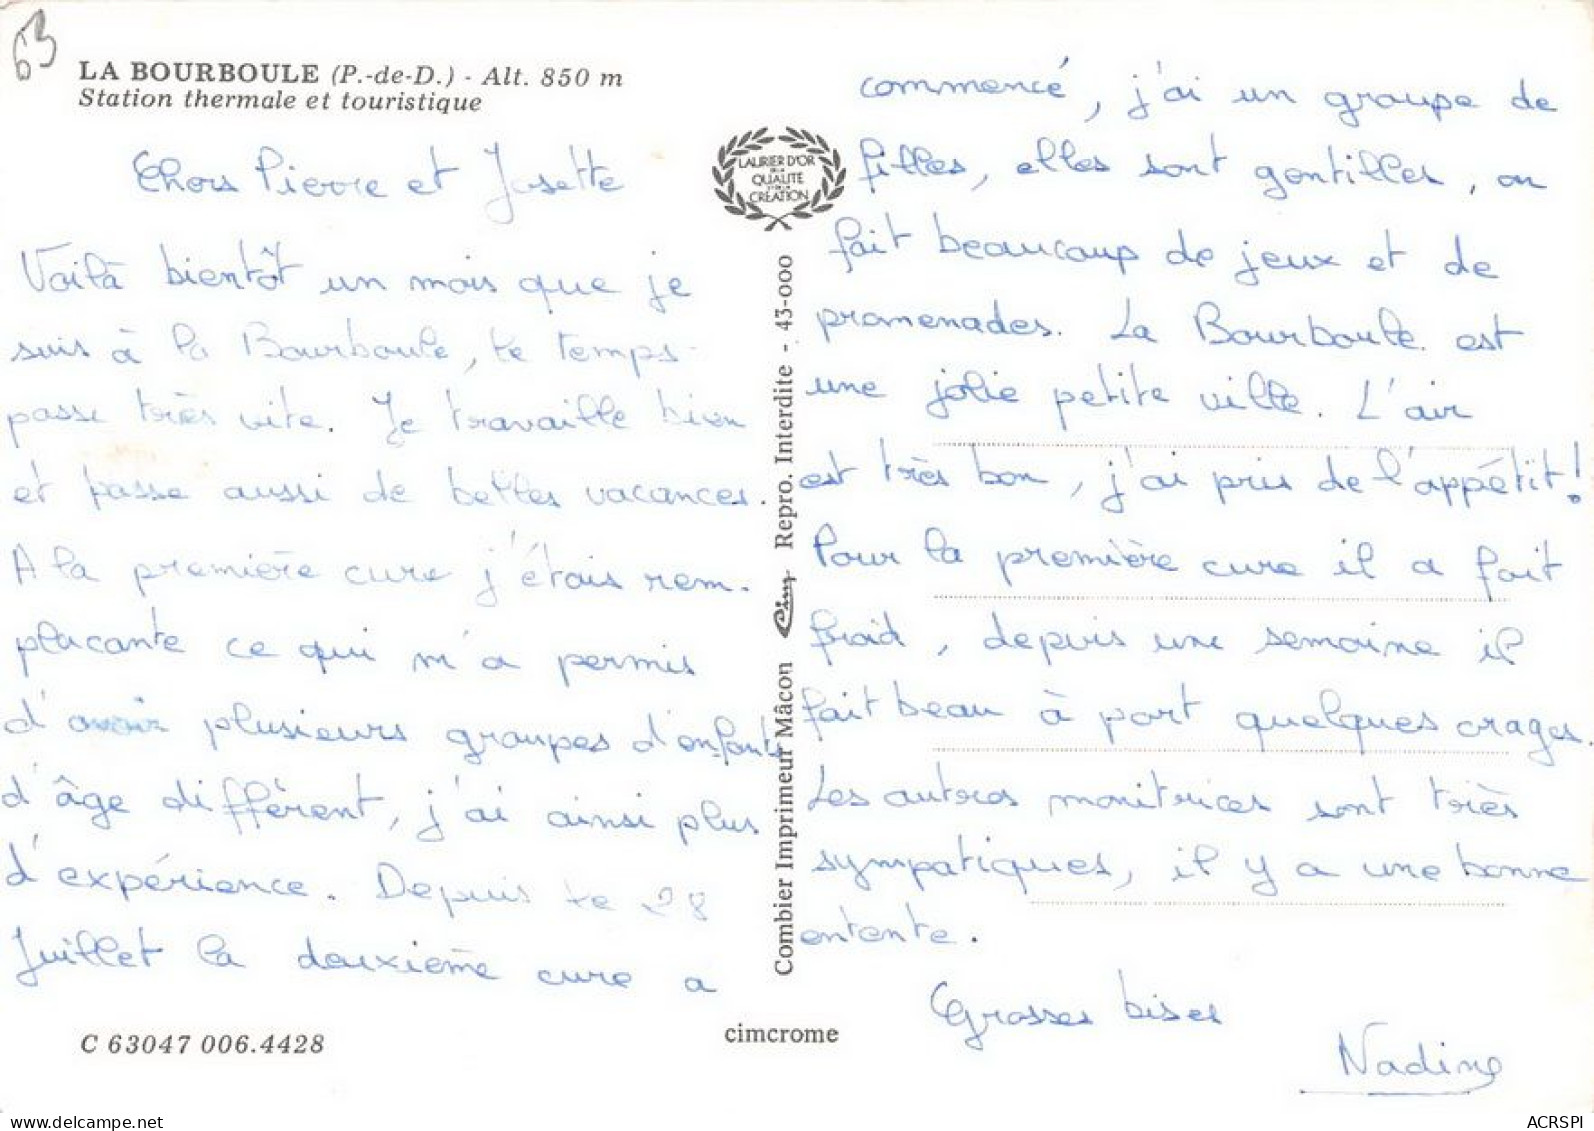 63
LA BOURBOULE (P.-de-D.) - Alt. 850 m
Station thermale et touristique
Chers Pierre et Josette
Voilà bientôt un mois que je
suis à la Bourboule, le temps
passe très vite. Je travaille bien
et passe aussi de belles vacances.
A la première cure j'étais rem-
plaçante ce qui m'a permis
d'avoir plusieurs groupes d'enfants
d'âge différent, j'ai ainsi plus
d'expérience. Depuis le 28
Juillet la deuxième cure a
C 63047 006.4428
LAURIER D'OR
DE LA
QUALITÉ
ET DE LA
CRÉATION
Combier Imprimeur Mâcon Cim Repro. Interdite - 43-000
cimcrome
commencé, j'ai un groupe de
filles, elles sont gentilles, on
fait beaucoup de jeux et de
promenades. La Bourboule est
une jolie petite ville. L'air
est très bon, j'ai pris de l'appétit!
Pour la première cure il a fait
froid, depuis une semaine il
fait beau à part quelques orages.
Les autres monitrices sont très
sympatiques, il y a une bonne
entente.
Grosses bises
Nadine
ACRSPI